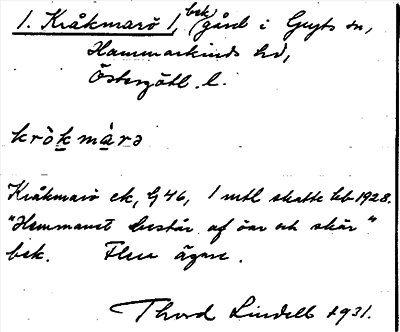 1. Kråkmarö 1, bek. gård i Gryts sn,
Hammarkinds hd,
Östergötl. l.
kròkmàrə
Kråkmarö ek, G 46, 1 mtl skatte Jrb 1928.
"Hemmanet består af öar och skär".
bek. Flera ägare.
Thord Lindell 1931.